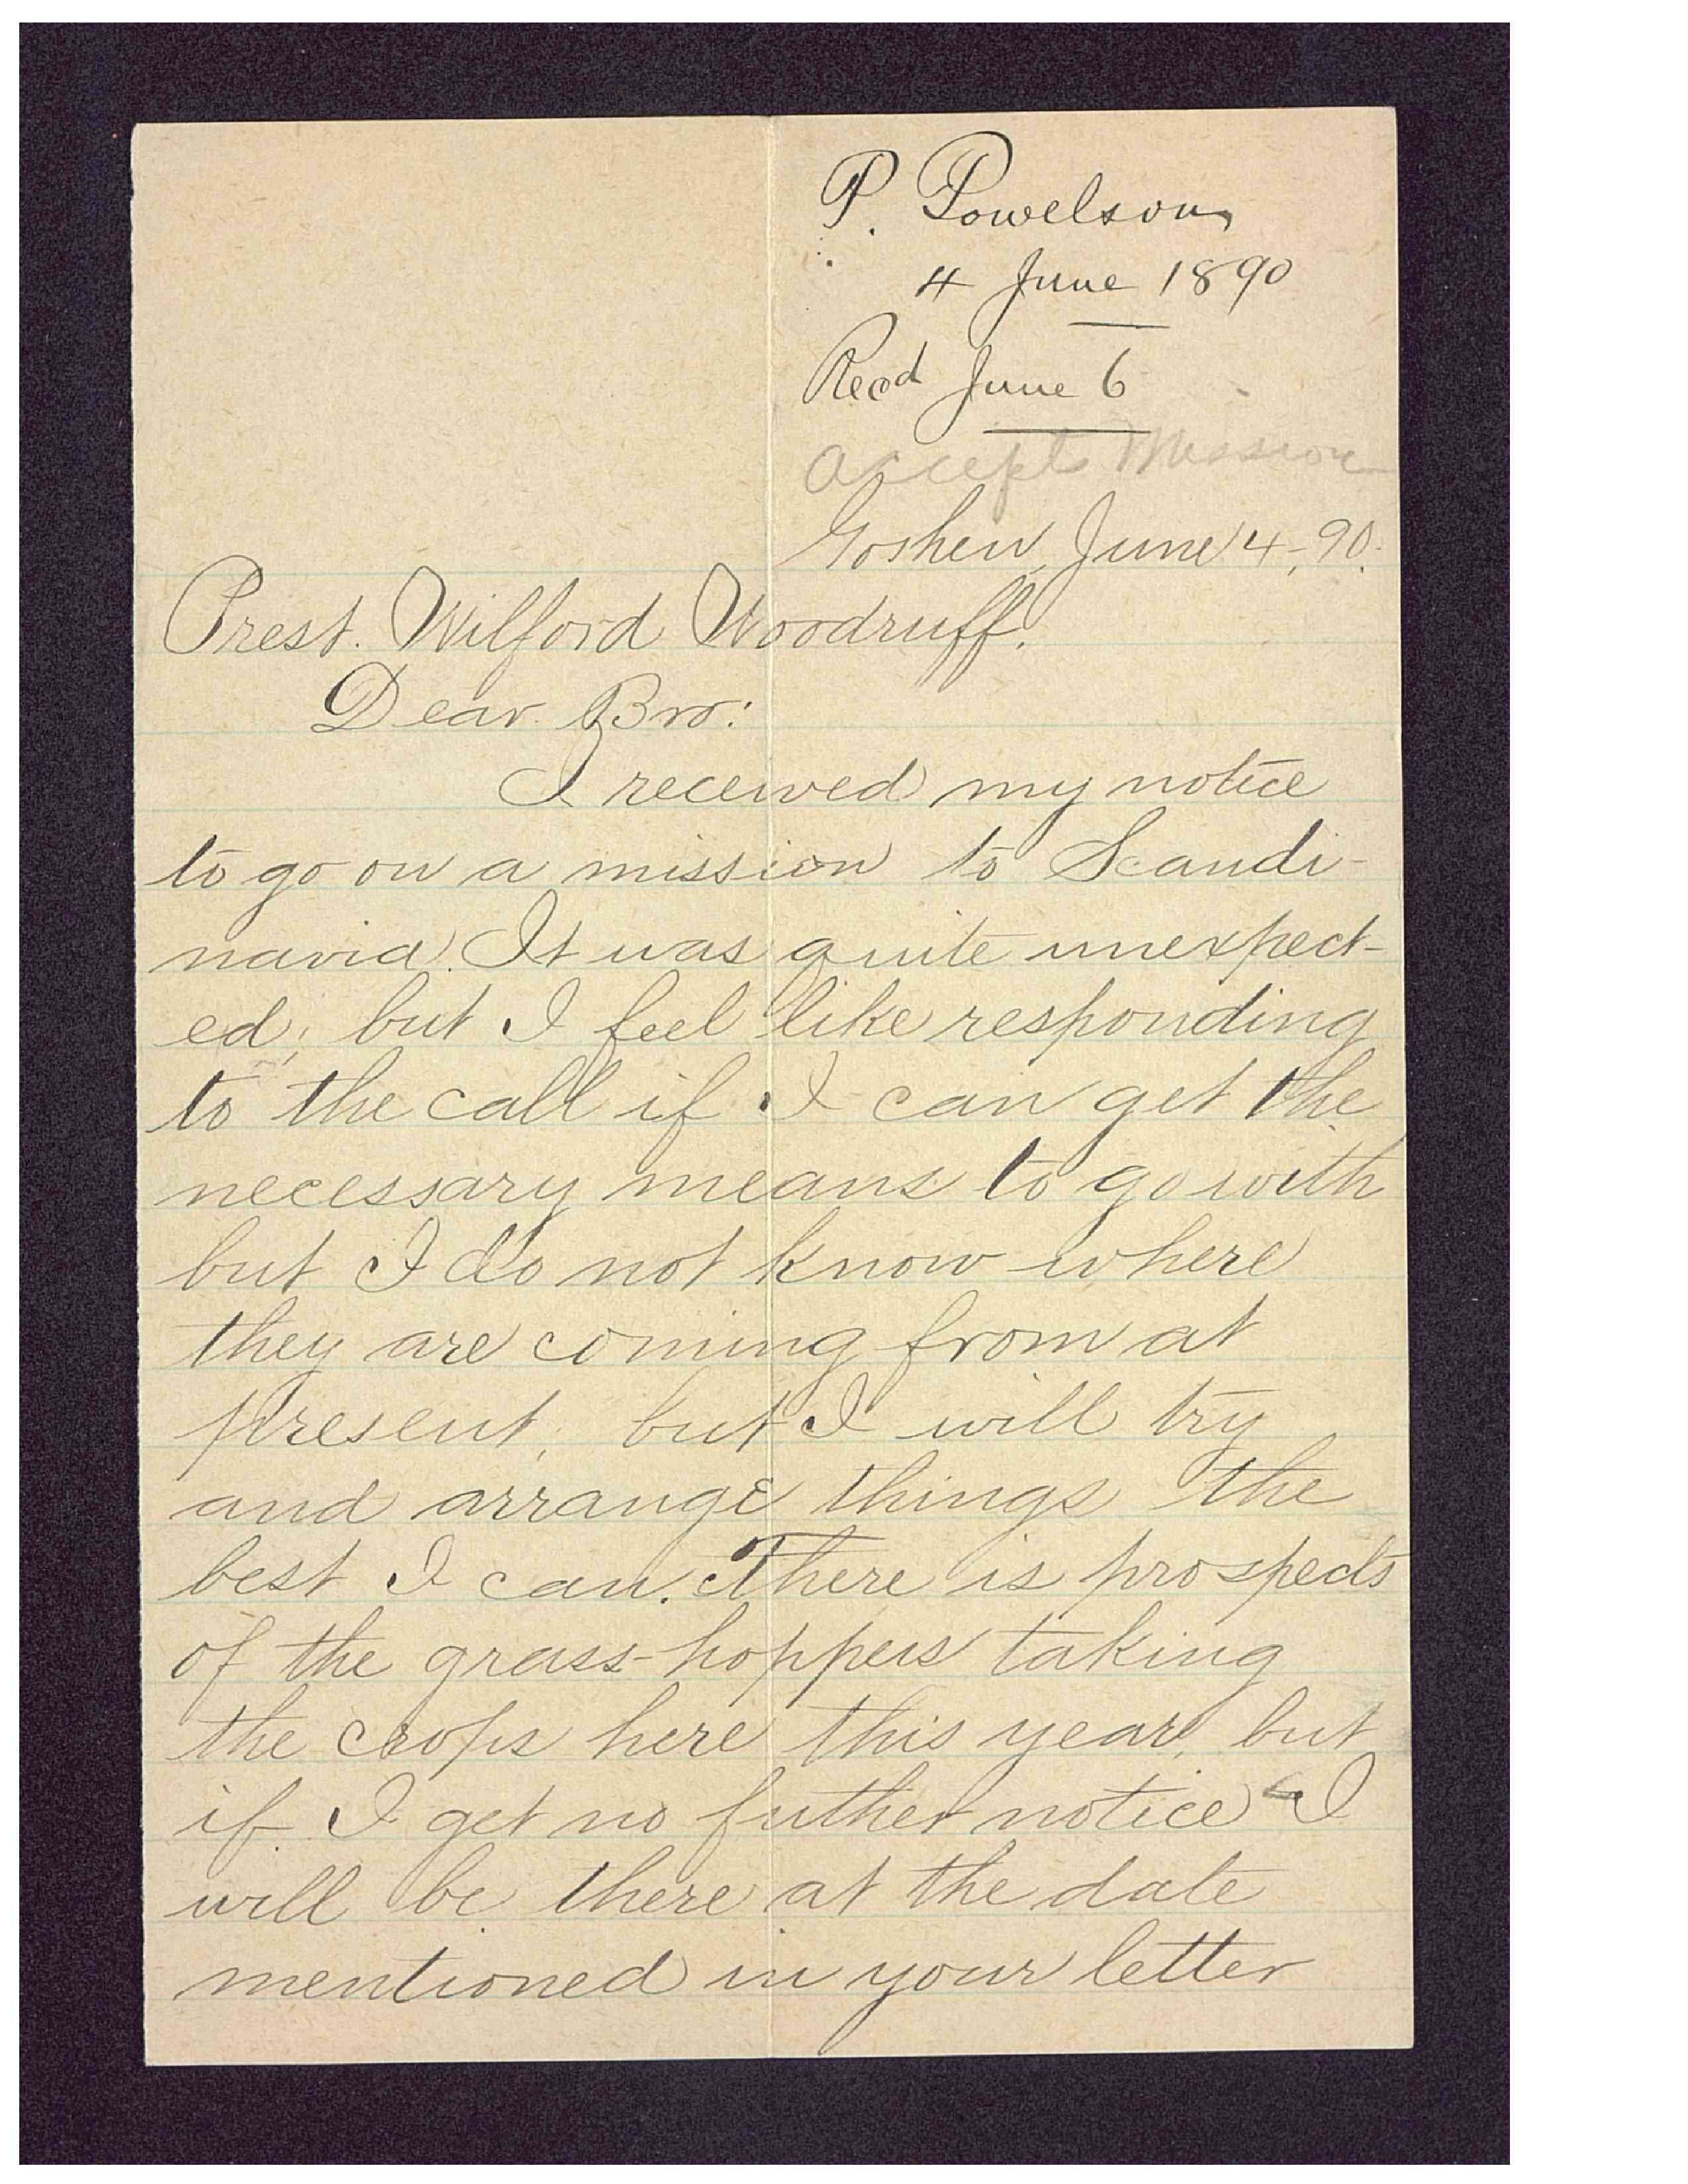 P. Powelson
4 June 1890
Recd June 6
accepts Mission
Goshen, June 4, 90.
Prest. Wilford Woodruff.
Dear Bro:
I received my notice
to go on a mission to Scandi-
navia. It was quite unexpect-
ed; but I feel like responding
to the call if I can get the
necessary means to go with
but I do not know where
they are coming from at
present, but I will try
and arrange things the
best I can. There is prospects
of the grass-hoppers taking
the crops here this year, but
if I get no futher notice I
will be there at the date
mentioned in your letter